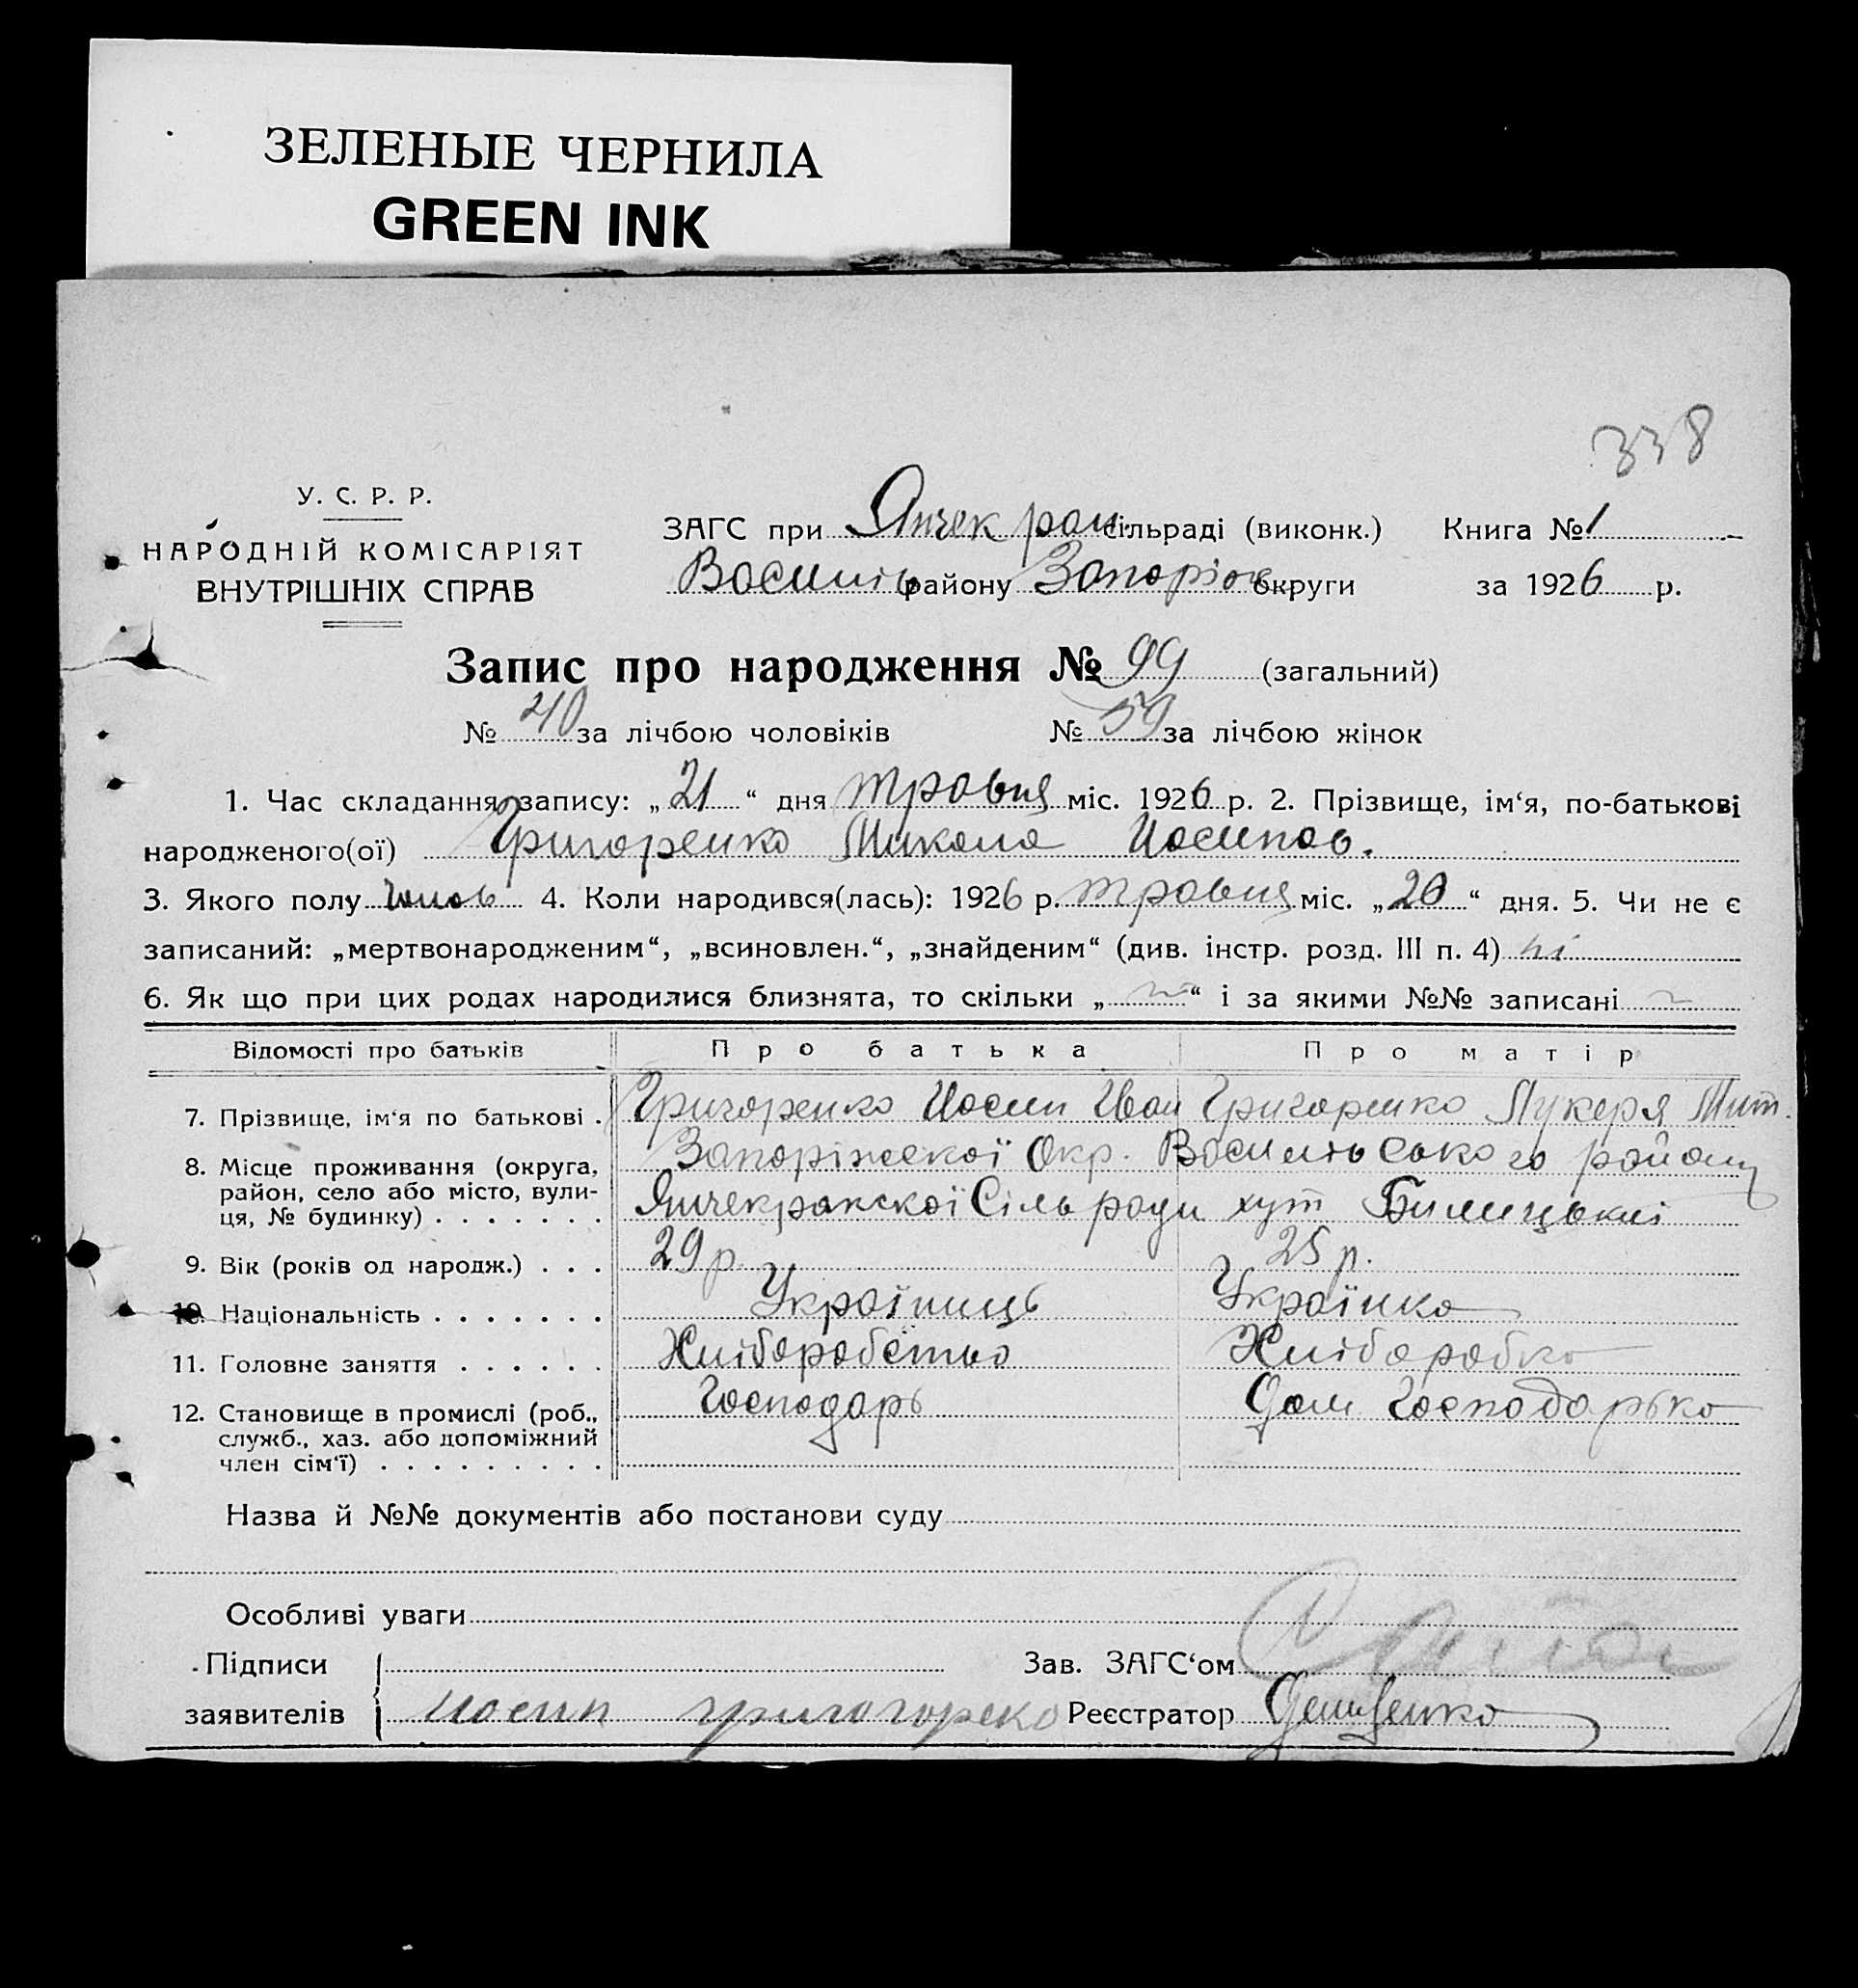 ЗЕЛЕНЫЕ ЧЕРНИЛА
GREEN INK
338
У. С. Р. Р.
НАРОДНІЙ КОМІСАРІЯТ
ВНУТРІШНІХ СПРАВ
ЗАГС при Янчекрац. сільраді (виконк.) Книга № 1
Васильів району Запоріж округи за 1926 р.
Запис про народження № 99 (загальний)
№ 40 за лічбою чоловіків № 59 за лічбою жінок
1. Час складання запису: „21“ дня травня міс. 1926 р. 2. Прізвище, ім‘я, по-батькові
народженого(ої) Григоренко Микола Йосипов.
3. Якого полу чолов 4. Коли народився(лась): 1926 р. травня міс. „20“ дня. 5. Чи не є
записаний: „мертвонародженим“, „всиновлен.“, „знайденим“ (див. інстр. розд. III п. 4) ні
6. Як що при цих родах народилися близнята, то скільки „ “ і за якими №№ записані
Відомості про батьків Про батька Про матір
7. Прізвище, ім‘я по батькові . Григоренко Йосип Іван Григоренко Лукеря Мит.
8. Місце проживання (округа, район, село або місто, вулиця, № будинку) . . . . . . . Запоріжської Окр. Васильівського району
Янчекракської Сільради хут Билицькі
9. Вік (років од народж.) . . . 29 р. 25 р.
10. Національність . . . . . . . Українець Українка
11. Головне заняття . . . . . . Хліборобство Хліборобка
12. Становище в промислі (роб., служб., хаз. або допоміжний член сім‘ї) . . . . . . . . . Господарь Дом Господарька
Назва й №№ документів або постанови суду
Особливі уваги
Підписи заявителів Йосип григогореко
Зав. ЗАГС‘ом
Реєстратор